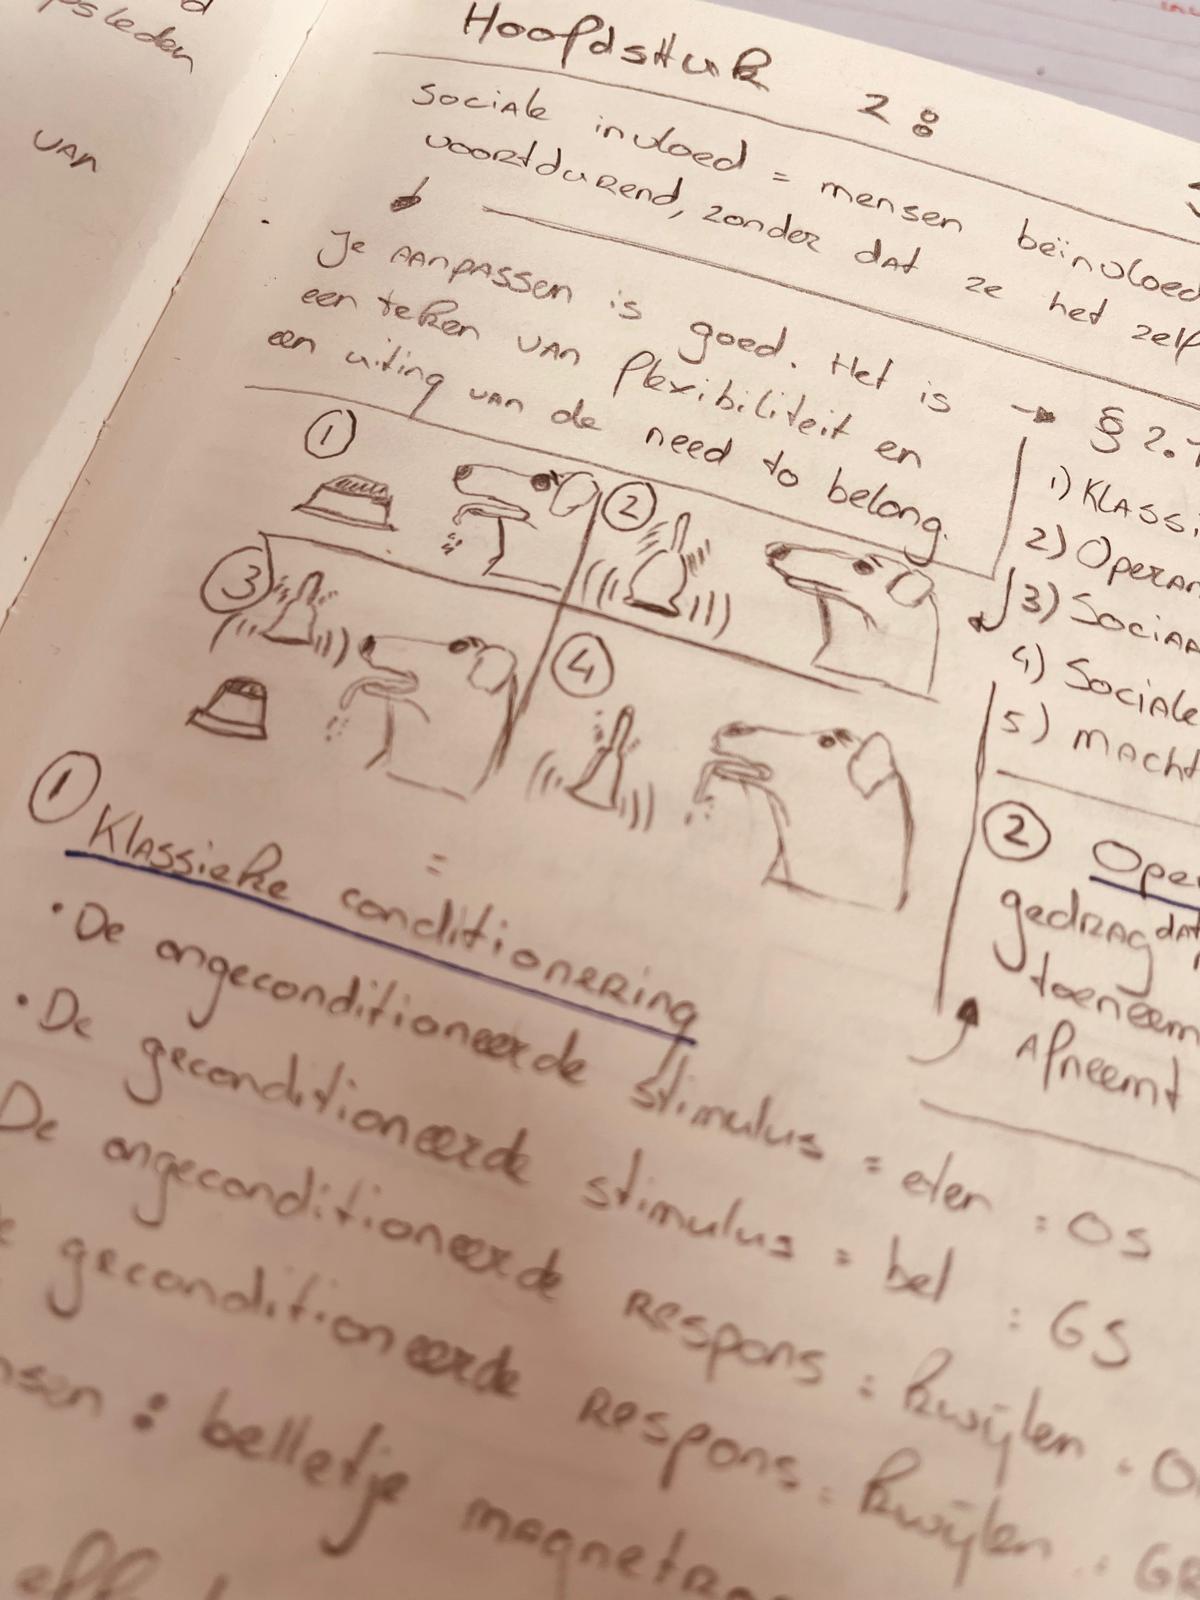 psleden
van
Hoofdstuk 2:
Sociale invloed = mensen beïnvloed
voortdurend, zonder dat ze het zelf
Je aanpassen is goed. Het is
een teken van flexibiliteit en
een uiting van de need to belong.
→ § 2.
1) Klassi
2) Operan
3) Sociaa
4) Sociale
5) macht
①
②
③
④
=
① Klassieke conditionering
• De ongeconditioneerde stimulus = eten : OS
• De geconditioneerde stimulus = bel : GS
De ongeconditioneerde respons = kwijlen : O
geconditioneerde respons = kwijlen : GR
nsen : belletje magnetro
② Oper
gedrag dat
toeneem
Afneemt